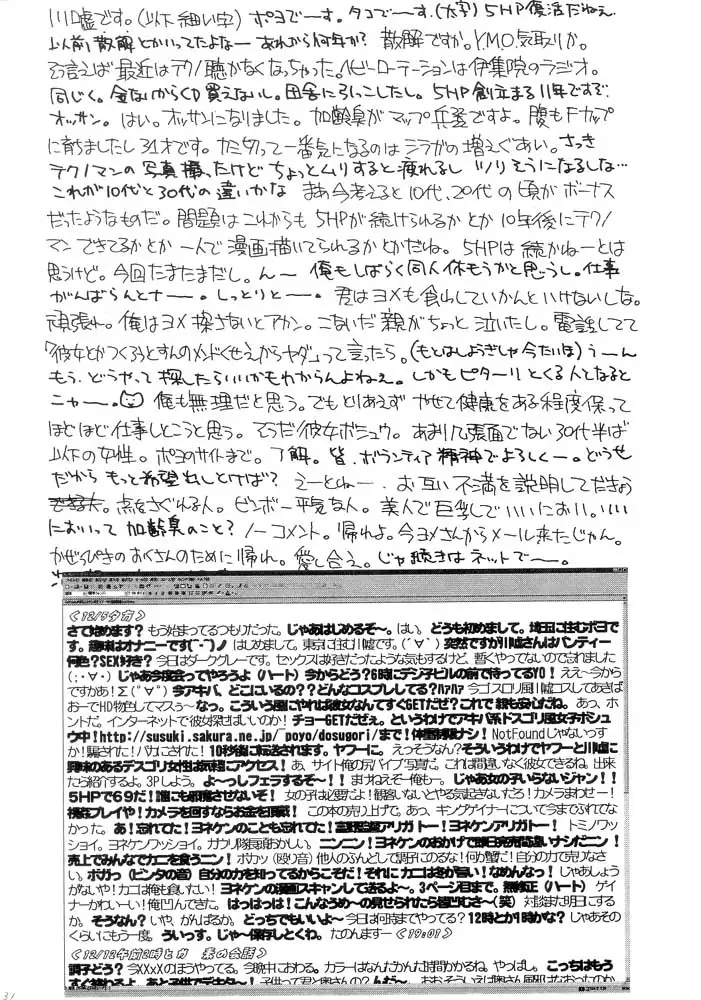 川嘘です。(以下細い字) ポヨでーす。タコでーす.(太字) 5HP復活だねぇ
以前散解とかいってたよなー あれから何年か? 散解ですか。Y.M.O.気取りか。
そう言えば最近はテクノ聴かなくなっちゃった。ヘビーローテーションは伊集院のラジオ。
同じく。金ないからCD買えないし。田舎に引っこしたし。5HP創立まる11年ですぞ
オッサン。はい。オッサンになりました。加齢臭がマップ兵器ですよ。腹もFカップ
に育ちましたし31才です。カミ切って一番気になるのはシラガの増えぐあい。さっき
テクノマンの写真撮ったけどちょっとムリすると疲れるし ツリそうになるしな…
これが10代と30代の違いかな まあ今考えると10代、20代の頃がボーナス
だったようなものだ。問題はこれからも5HPが続けられるかとか10年後にテクノ
マンできてるかとか一人で漫画描いてられるかとかだね。5HPは続かねーとは
思うけど。今回たまたまだし。んー 俺もしばらく同人休もうかと思うし。仕事
がんばらんとナー。しっとりとー。君はヨメも食わしていかんといけないしな。
頑張れ。俺はヨメ探さないとアカン。こないだ親がちょっと泣いたし。電話してて
「彼女とかつくろうとすんのメンドくせえからヤダ」って言ったら。(もとはしょうぎしゃ今たいほ) うーん
もう、どうやって探したらいいかもわからんよねぇ。しかもピターリとくる人となると
ニャー。俺も無理だと思う。でもとりあえずやせて健康をある程度保って
ほどほど仕事しとこうと思う。そうだ!彼女ボシュウ。あまり几張面でない30代半ば
以下の女性。ポヨのサイトまで。了解。皆、ボランティア精神でよろしくー。どうせ
だからもっと希望出しとけば? えーとねー、お互い不満を説明してだきょう
できる人。点をさぐれる人。ビンボー平気な人。美人で巨乳でいいにおい。いい
においって加齢臭のこと? ノーコメント。帰れよ。今ヨメさんからメール来たじゃん。
かぜっぴきのおくさんのために帰れ。愛し合え。じゃ続きはネットでー。
<12/5夕方>
さて始めます? もう始まってるつもりだった。じゃあはじめるぞ〜。はい。どうも初めまして。埼玉に住むポヨで
す。趣味はオナニーです(⌒-⌒)ノ はじめまして。東京に住む川嘘です。(´∀`) 突然ですが川嘘さんはパンティー
何色?SEX好き? 今日はダークグレーです。セックスは好きだったような気もするけど、暫くやってないので忘れました
(;・∀・) じゃあ今度会ってやろうよ(ハート) 今からどう?6時にデジ子ビルの前で待ってるYO! ええ〜今から
ですかあ!Σ(゚∀゚) 今アキバ、どこにいるの??どんなコスプレしてる?ハァハァ 今ゴスロリ風川嘘コスしてあきば
おーでHD物色してマスぅ〜なっ。こういう風にやれば彼女なんてすぐGETだぜ?これで親も安心だね。あっ、ホ
ントだ。インターネットで彼女探せばいいのか! チョーGETだぜぇ。というわけでアキバ系ドスゴリ風女子ボシュ
ウ中!http://susuki.sakura.ne.jp/~poyo/dosugori/まで!体重制限ナシ! NotFoundじゃないっす
か!騙された!バカにされた! 10秒後に転送されます。ヤフーに。えっそうなん?そういうわけでヤフーと川嘘に
興味のあるデスゴリ女性は気軽にアクセス! あ、サイト俺の尻バイブ写真だ。これは間違いなく彼女できるね。出来
たら紹介するよ。3Pしよう。よ〜っしフェラするぞ〜!! まずねえぞ一俺も一。じゃあ女の子いらないジャン!!
5HPで69だ!誰にも邪魔させないぞ! 女の子は必要だよ!観客いないとやる気起きないだろ!カメラまわせー!
視姦プレイや!カメラを回すならお金を頂戴! この本の売り上げで。あっ、キングゲイナーについて今までふれてな
かった。あ!忘れてた!ヨネケンのことも忘れてた!富野監督アリガトー!ヨネケンアリガトー! トミノワッ
ショイ。ヨネケンワッショイ。カナリ隊長恥かしい。ニンニン!ヨネケンのおかげで即日完売間違いナシだニン!
売上でみんなでカニを食うニン! ポカッ(殴り音)他人のふんどしで調子にのるな!何が蟹だ!自分の力で売りなさ
い。ボガっ(ビンタの音)自分の力を知ってるからこそだ!それにカニは冬が旨い!なめんなっ! じゃあしょう
がないや!カニは俺も食いたい! ヨネケンの漫画スキャンして送るよ〜。3ページ目まで。無修正(ハート) ゲイ
ナーかわいーい!俺凹んできた。はっはっは!こんなうめ〜の見せられたら皆凹むさ〜(笑) 対談また明日にする
か。そうなん? いや、がんばるか。どっちでもいいよ〜 今日は何時までやってる? 12時とか1時かな? じゃあその
くらいにもう一度。ういっす。じゃ〜保存しとくわ。たのんますー <19:01>
<12/12午前2時とか 素の会話>
調子どう? 今XXXXのほうやってる。今晩中におわる。カラーはなんだかんだ時間かかるね。やっぱし。こっちはもう
31